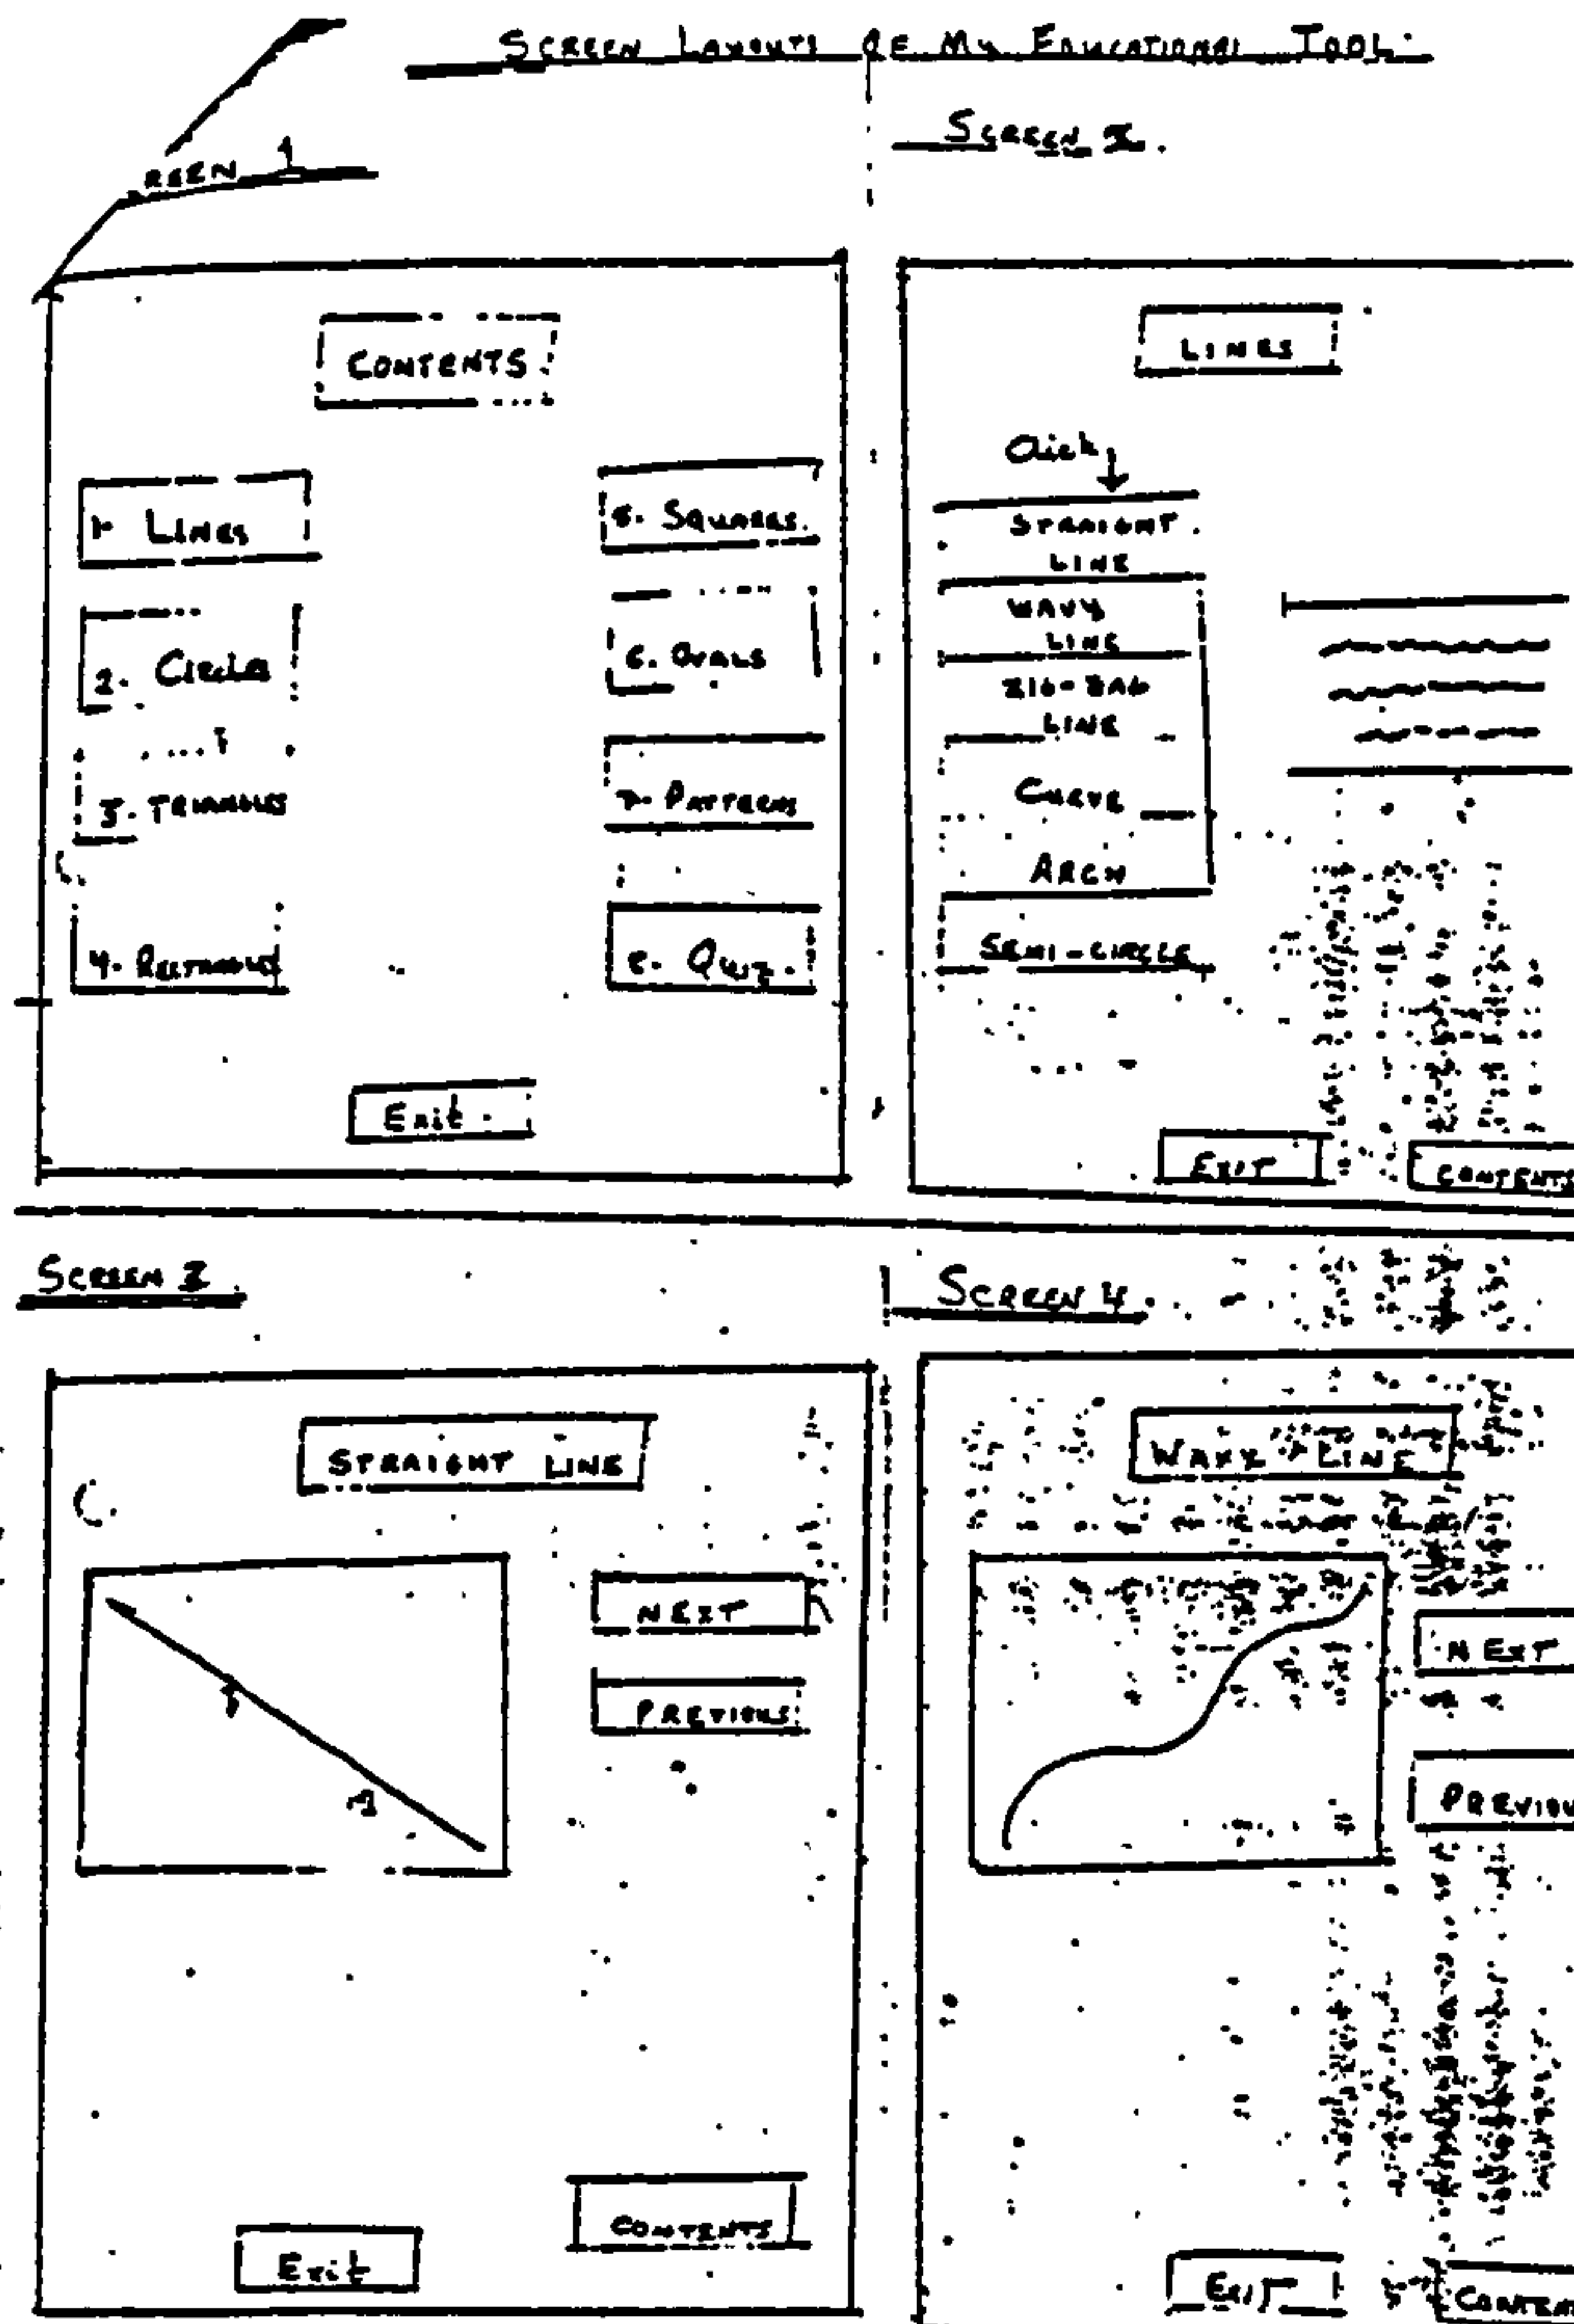 SCREEN LAYOUTS OF MY EDUCATIONAL TOOL
REEN 1
CONTENTS
1. LINES
2. Circles
3. TRIANGLES
4. RECTANGLES
5. SQUARES.
6. OVALS
7. PATTERNS
8. QUIZ.
Exit
SCREEN 2.
LINES
Click
STRAIGHT
LINE
WAVY
LINE
ZIG-ZAG
LINE
CURVE
ARCH
SEMI-CIRCLE
EXIT
CONTENTS
SCREEN 3
STRAIGHT LINE
NEXT
PREVIOUS
CONTENTS
Exit
SCREEN 4.
WAVY LINE
NEXT
PREVIOU
EXIT
CONTEN